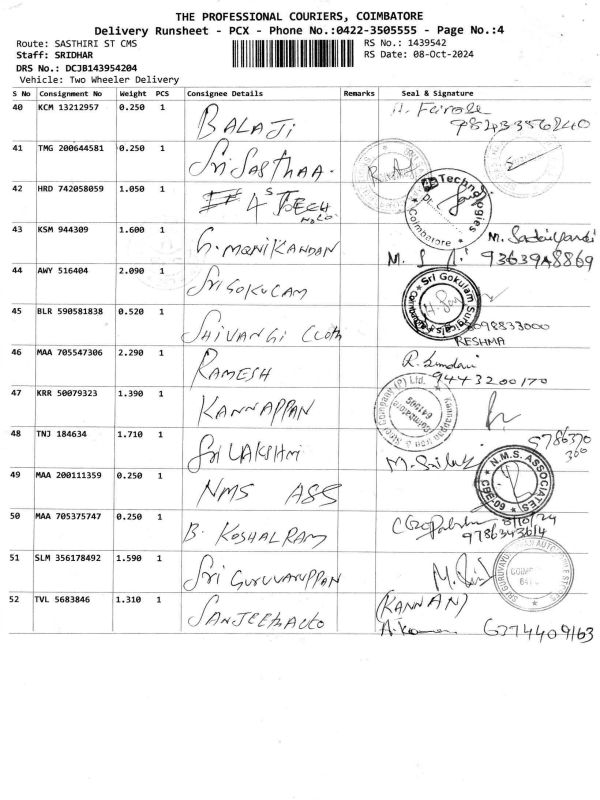 THE PROFESSIONAL COURIERS, COIMBATORE
Delivery Runsheet - PCX - Phone No.:0422-3505555 - Page No.:4
Route: SASTHIRI ST CMS RS No.: 1439542
Staff: SRIDHAR RS Date: 08-Oct-2024
DRS No.: DCJB143954204
Vehicle: Two Wheeler Delivery
S No Consignment No Weight PCS Consignee Details Remarks Seal & Signature
40 KCM 13212957 0.250 1 BALAJI 9843356240
41 TMG 200644581 0.250 1 Sri SASTHAA.
42 HRD 742058059 1.050 1 4S TECH Technologies Coimbatore
43 KSM 944309 1.600 1 G. MANIKANDAN
44 AWY 516404 2.090 1 Sri GOKULAM Sri Gokulam Surgicals
45 BLR 590581838 0.520 1 SHIVANGI Cloth RESHMA
46 MAA 705547306 2.290 1 RAMESH 9443200170
47 KRR 50079323 1.390 1 KANNAPPAN Kannappan Iron & Steel Company (P) Ltd.
48 TNJ 184634 1.710 1 Sri LAKSHMI 9786370
49 MAA 200111359 0.250 1 NMS ASS N.M.S. ASSOCIATES CBE-09
50 MAA 705375747 0.250 1 B. KOSHALRAM 8/10/24
51 SLM 356178492 1.590 1 Sri GURUVAYUPPAN
52 TVL 5683846 1.310 1 SANJEETH AUTO (KANNAN)
6374409163